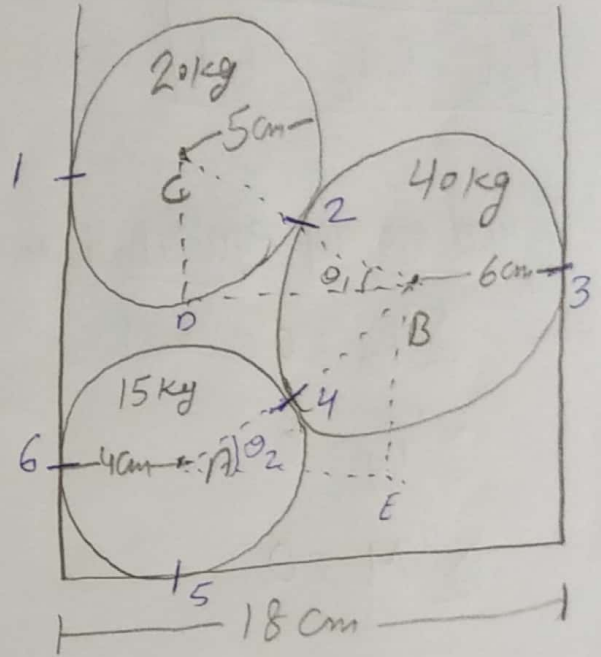 20kg
5cm
1
C
2
40kg
θ1
6cm
3
D
B
15kg
4
6
4cm
A
θ2
E
5
18 cm